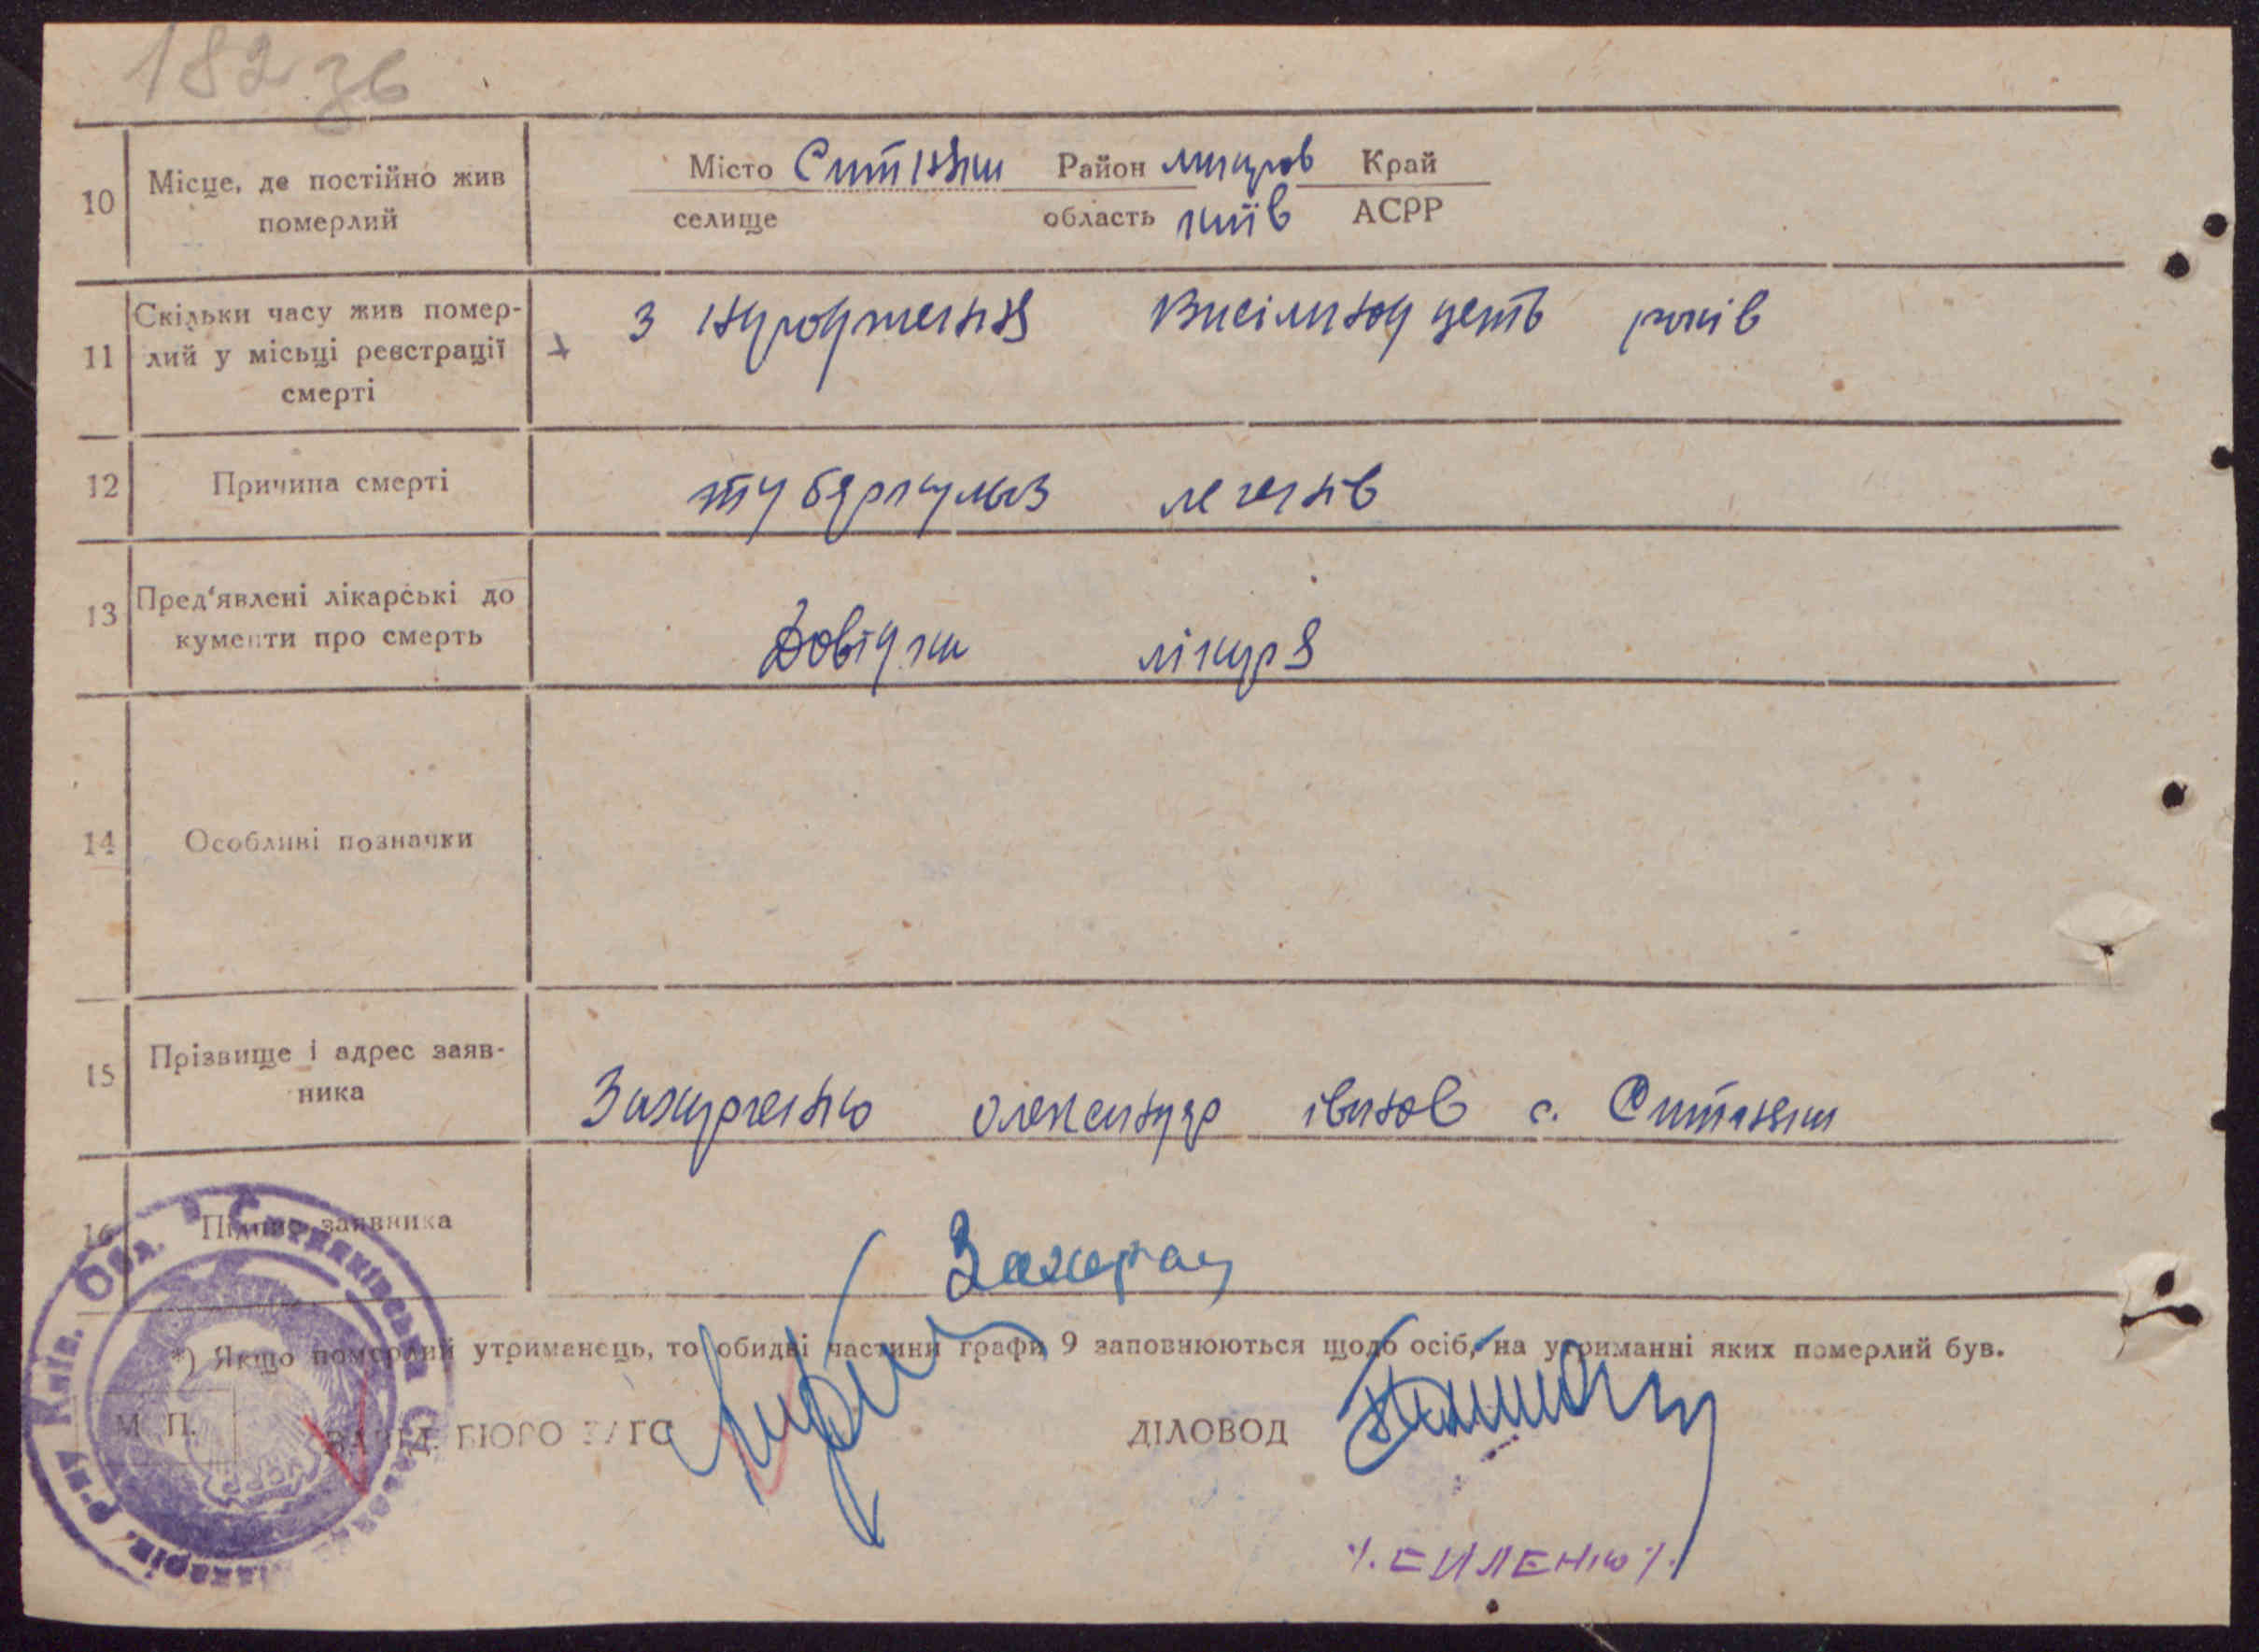 182 зв
10 Місце, де постійно жив померлий
Місто Ситняки Район макаров Край
селище область київ АСРР
11 Скільки часу жив помер-
лий у місьці реєстрації
смерті
з народження Висімнадцеть років
12 Причина смерті
туберкульоз легенів
13 Пред'явлені лікарські до
кументи про смерть
Довідка лікаря
14 Особливі позначки
15 Прізвище і адрес заяв-
ника
Захарченко олександр іванов с. Ситняки
16 Підпис заявника
*) Якщо померлий утриманець, то обидві частини графи 9 заповнюються щодо осіб, на утриманні яких померлий був.
М. П. ЗАВІД. БЮРО ЗАГС ДІЛОВОД
Ситняківська Сільська Макарів. р-ну Київ. Обл.